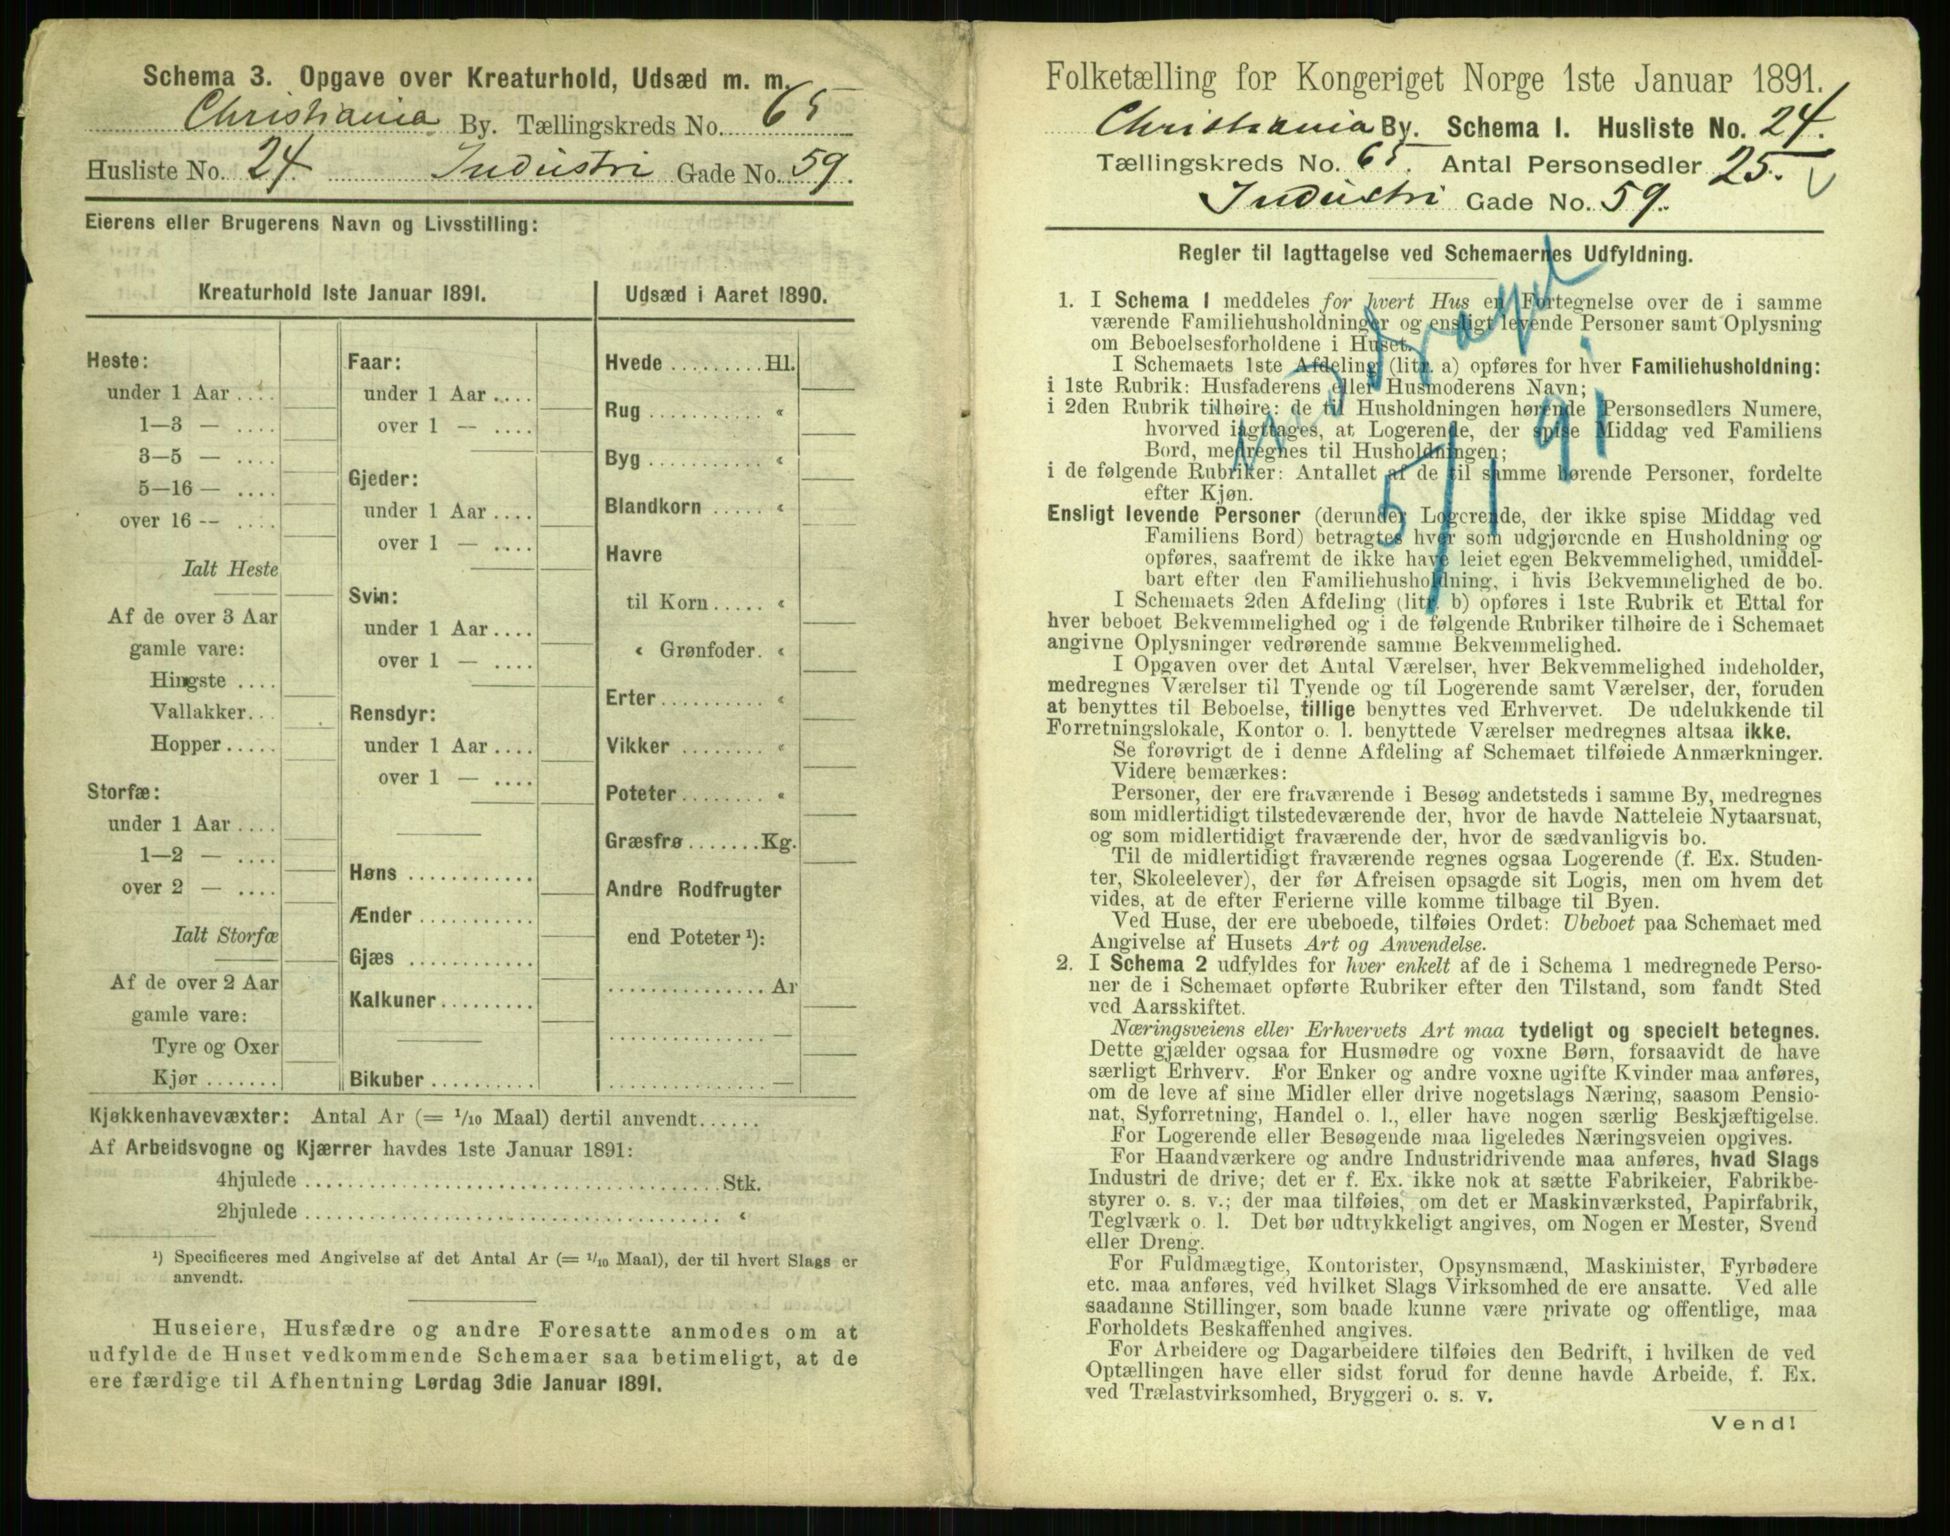 Schema 3. Opgave over Kreaturhold, Udsæd m. m.
Christiania By. Tællingskreds No. 65
Husliste No. 24. Industri Gade No. 59.
Eierens eller Brugerens Navn og Livsstilling:
Kreaturhold 1ste Januar 1891.
Heste:
under 1 Aar....
1—3 — ....
3—5 — ....
5—16 — ....
over 16 -- ....
Ialt Heste
Af de over 3 Aar
gamle vare:
Hingste ....
Vallakker...
Hopper.....
Storfæ:
under 1 Aar....
1—2 — ....
over 2 — ....
Ialt Storfæ
Af de over 2 Aar
gamle vare:
Tyre og Oxer
Kjør.......
Faar:
under 1 Aar....
over 1 — ....
Gjeder:
under 1 Aar....
over 1 — ....
Svin:
under 1 Aar....
over 1 — ....
Rensdyr:
under 1 Aar....
over 1 — ....
Høns ............
Ænder ...........
Gjæs ............
Kalkuner.........
Bikuber..........
Udsæd i Aaret 1890.
Hvede .........Hl.
Rug ........... «
Byg ........... «
Blandkorn ..... «
Havre
til Korn..... «
« Grønfoder. «
Erter.......... «
Vikker ........ «
Poteter........ «
Græsfrø.......Kg.
Andre Rodfrugter
end Poteter ¹):
...............Ar
............... —
............... —
Kjøkkenhavevæxter: Antal Ar (= 1/10 Maal) dertil anvendt......
Af Arbeidsvogne og Kjærrer havdes 1ste Januar 1891:
4hjulede ........................................Stk.
2hjulede ........................................ «
¹) Specificeres med Angivelse af det Antal Ar (= 1/10 Maal), der til hvert Slags er
anvendt.
Huseiere, Husfædre og andre Foresatte anmodes om at
udfylde de Huset vedkommende Schemaer saa betimeligt, at de
ere færdige til Afhentning Lørdag 3die Januar 1891.
Folketælling for Kongeriget Norge 1ste Januar 1891.
Christiania By. Schema 1. Husliste No. 24.
Tællingskreds No. 65. Antal Personsedler 25.
Industri Gade No. 59.
Regler til Iagttagelse ved Schemaernes Udfyldning.
1. I Schema 1 meddeles for hvert Hus en Fortegnelse over de i samme
værende Familiehusholdninger og ensligt levende Personer samt Oplysning
om Beboelsesforholdene i Huset.
I Schemaets 1ste Afdeling (litr. a) opføres for hver Familiehusholdning:
i 1ste Rubrik: Husfaderens eller Husmoderens Navn;
i 2den Rubrik tilhøire: de til Husholdningen hørende Personsedlers Numere,
hvorved iagttages, at Logerende, der spise Middag ved Familiens
Bord, medregnes til Husholdningen;
i de følgende Rubriker: Antallet af de til samme hørende Personer, fordelte
efter Kjøn.
Ensligt levende Personer (derunder Logerende, der ikke spise Middag ved
Familiens Bord) betragtes hver som udgjørende en Husholdning og
opføres, saafremt de ikke have leiet egen Bekvemmelighed, umiddel-
bart efter den Familiehusholdning, i hvis Bekvemmelighed de bo.
I Schemaets 2den Afdeling (litr. b) opføres i 1ste Rubrik et Ettal for
hver beboet Bekvemmelighed og i de følgende Rubriker tilhøire de i Schemaet
angivne Oplysninger vedrørende samme Bekvemmelighed.
I Opgaven over det Antal Værelser, hver Bekvemmelighed indeholder,
medregnes Værelser til Tyende og til Logerende samt Værelser, der, foruden
at benyttes til Beboelse, tillige benyttes ved Erhvervet. De udelukkende til
Forretningslokale, Kontor o. l. benyttede Værelser medregnes altsaa ikke.
Se forøvrigt de i denne Afdeling af Schemaet tilføiede Anmærkninger.
Videre bemærkes:
Personer, der ere fraværende i Besøg andetsteds i samme By, medregnes
som midlertidigt tilstedeværende der, hvor de havde Natteleie Nytaarsnat,
og som midlertidigt fraværende der, hvor de sædvanligvis bo.
Til de midlertidigt fraværende regnes ogsaa Logerende (f. Ex. Studen-
ter, Skoleelever), der før Afreisen opsagde sit Logis, men om hvem det
vides, at de efter Ferierne ville komme tilbage til Byen.
Ved Huse, der ere ubeboede, tilføies Ordet: Ubeboet paa Schemaet med
Angivelse af Husets Art og Anvendelse.
2. I Schema 2 udfyldes for hver enkelt af de i Schema 1 medregnede Perso-
ner de i Schemaet opførte Rubriker efter den Tilstand, som fandt Sted
ved Aarsskiftet.
Næringsveiens eller Erhvervets Art maa tydeligt og specielt betegnes.
Dette gjælder ogsaa for Husmødre og voxne Børn, forsaavidt de have
særligt Erhverv. For Enker og andre voxne ugifte Kvinder maa anføres,
om de leve af sine Midler eller drive nogetslags Næring, saasom Pensio-
nat, Syforretning, Handel o. l., eller have nogen særlig Beskjæftigelse.
For Logerende eller Besøgende maa ligeledes Næringsveien opgives.
For Haandværkere og andre Industridrivende maa anføres, hvad Slags
Industri de drive; det er f. Ex. ikke nok at sætte Fabrikeier, Fabrikbe-
styrer o. s. v.; der maa tilføies, om det er Maskinværksted, Papirfabrik,
Teglværk o. l. Det bør udtrykkeligt angives, om Nogen er Mester, Svend
eller Dreng.
For Fuldmægtige, Kontorister, Opsynsmænd, Maskinister, Fyrbødere
etc. maa anføres, ved hvilket Slags Virksomhed de ere ansatte. Ved alle
saadanne Stillinger, som baade kunne være private og offentlige, maa
Forholdets Beskaffenhed angives.
For Arbeidere og Dagarbeidere tilføies den Bedrift, i hvilken de ved
Optællingen have eller sidst forud for denne havde Arbeide, f. Ex.
ved Trælastvirksomhed, Bryggeri o. s. v.
Vend!
5/1 91